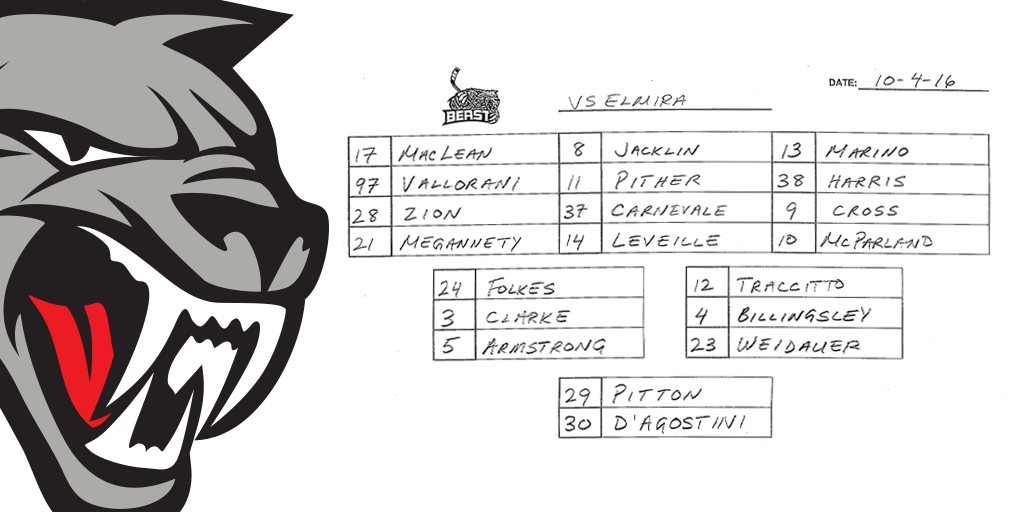 DATE: 10-4-16
BEAST
VS ELMIRA
17 MACLEAN 8 JACKLIN 13 MARINO
97 VALLORANI 11 PITHER 38 HARRIS
28 ZION 37 CARNEVALE 9 CROSS
21 MEGANNETY 14 LEVEILLE 10 McPARLAND
24 FOLKES 12 TRACCITTO
3 CLARKE 4 BILLINGSLEY
5 ARMSTRONG 23 WEIDAUER
29 PITTON
30 D'AGOSTINI